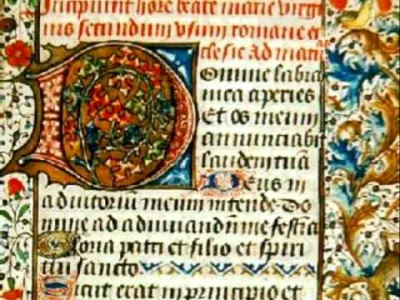 Incipiunt hore beate marie virg
inis secundum usum romane et
clesie Ad mat
Domine labia
mea aperies
Et os meum
annunciabit
laudem tuā
Deus in
adiutorium meum intende Do
mine ad adiuvandū me festia
Gloria patri et filio et spiri
tui sancto
Sicut erat in principio et